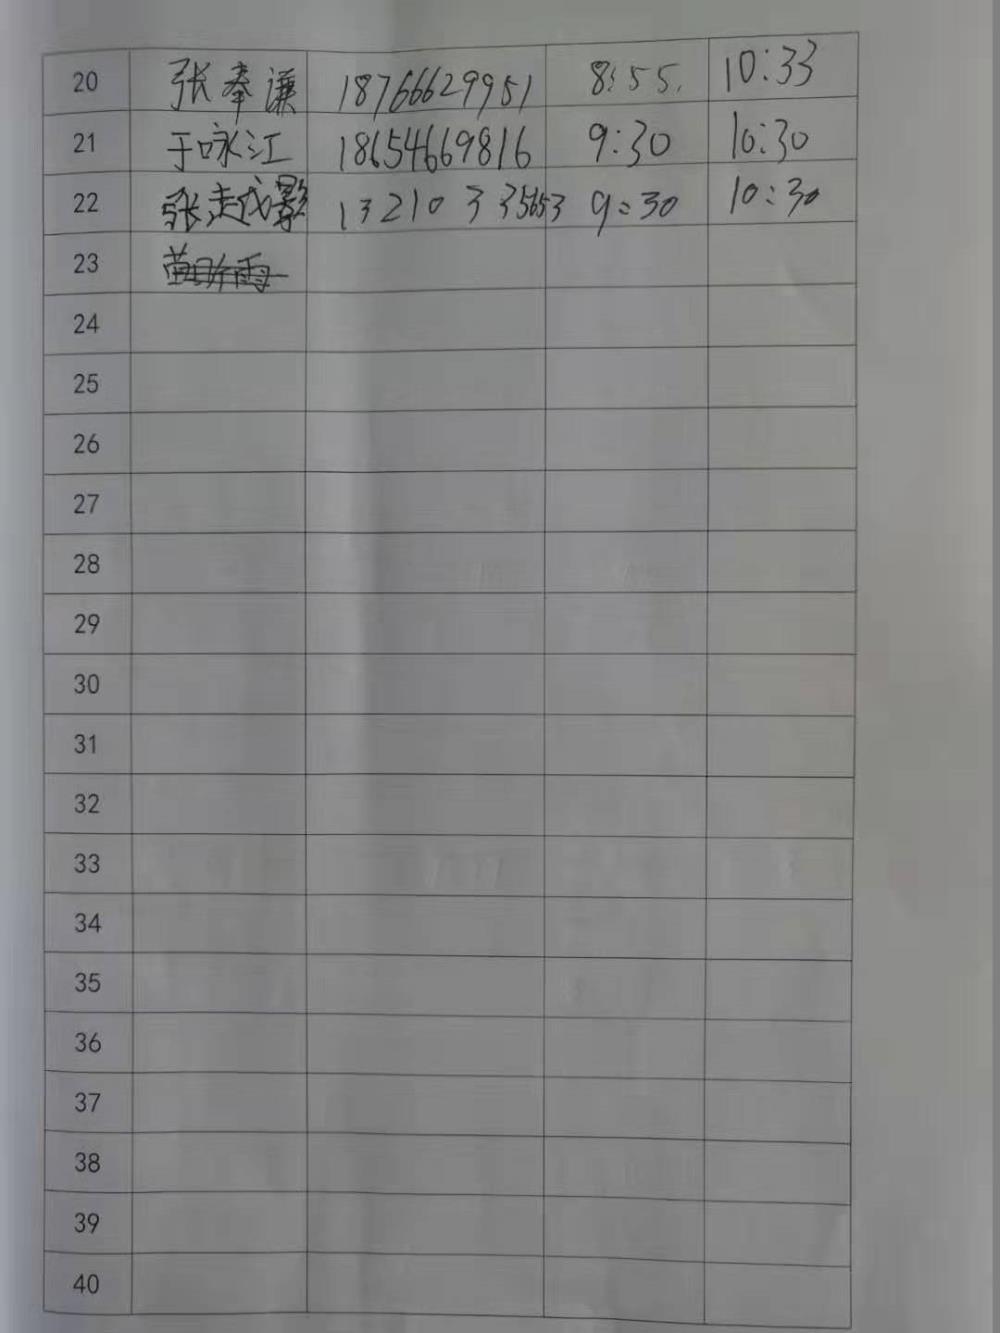 20 张奉谦 18766629951 8:55. 10:33
21 于咏江 18654669816 9:30 10:30
22 张越影 13210335653 9:30 10:30
23
24
25
26
27
28
29
30
31
32
33
34
35
36
37
38
39
40